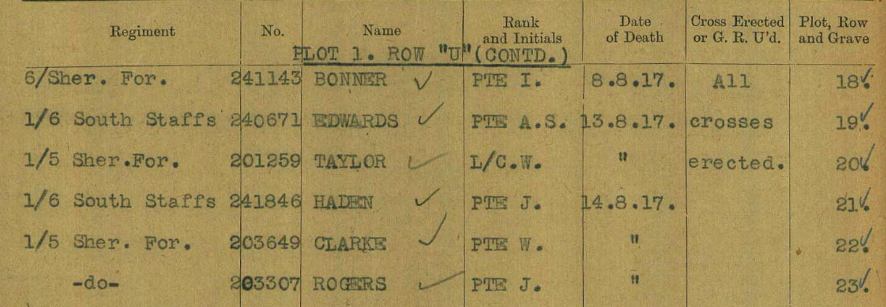 Regiment No. Name Rank and Initials Date of Death Cross Erected or G. R. U'd. Plot, Row and Grave
PLOT 1. ROW "U"(CONTD.)
6/Sher. For. 241143 BONNER ✓ PTE I. 8.8.17. All 18.
1/6 South Staffs 240671 EDWARDS ✓ PTE A.S. 13.8.17. crosses 19.
1/5 Sher.For. 201259 TAYLOR ✓ L/C.W. " erected. 20.
1/6 South Staffs 241846 HADEN ✓ PTE J. 14.8.17. 21.
1/5 Sher. For. 203649 CLARKE ✓ PTE W. " 22.
-do- 203307 ROGERS ✓ PTE J. " 23.